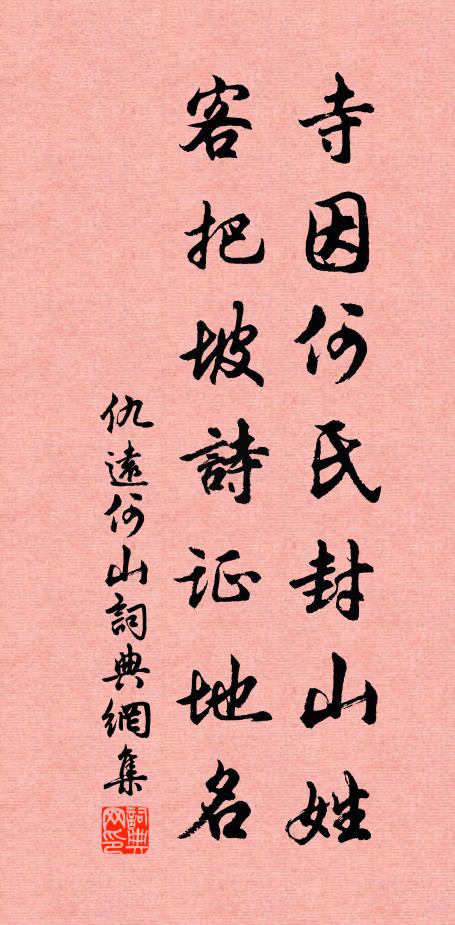 寺因何氏封山姓
客把坡詩证地名
仇遠何山詞典網集
詞典网印